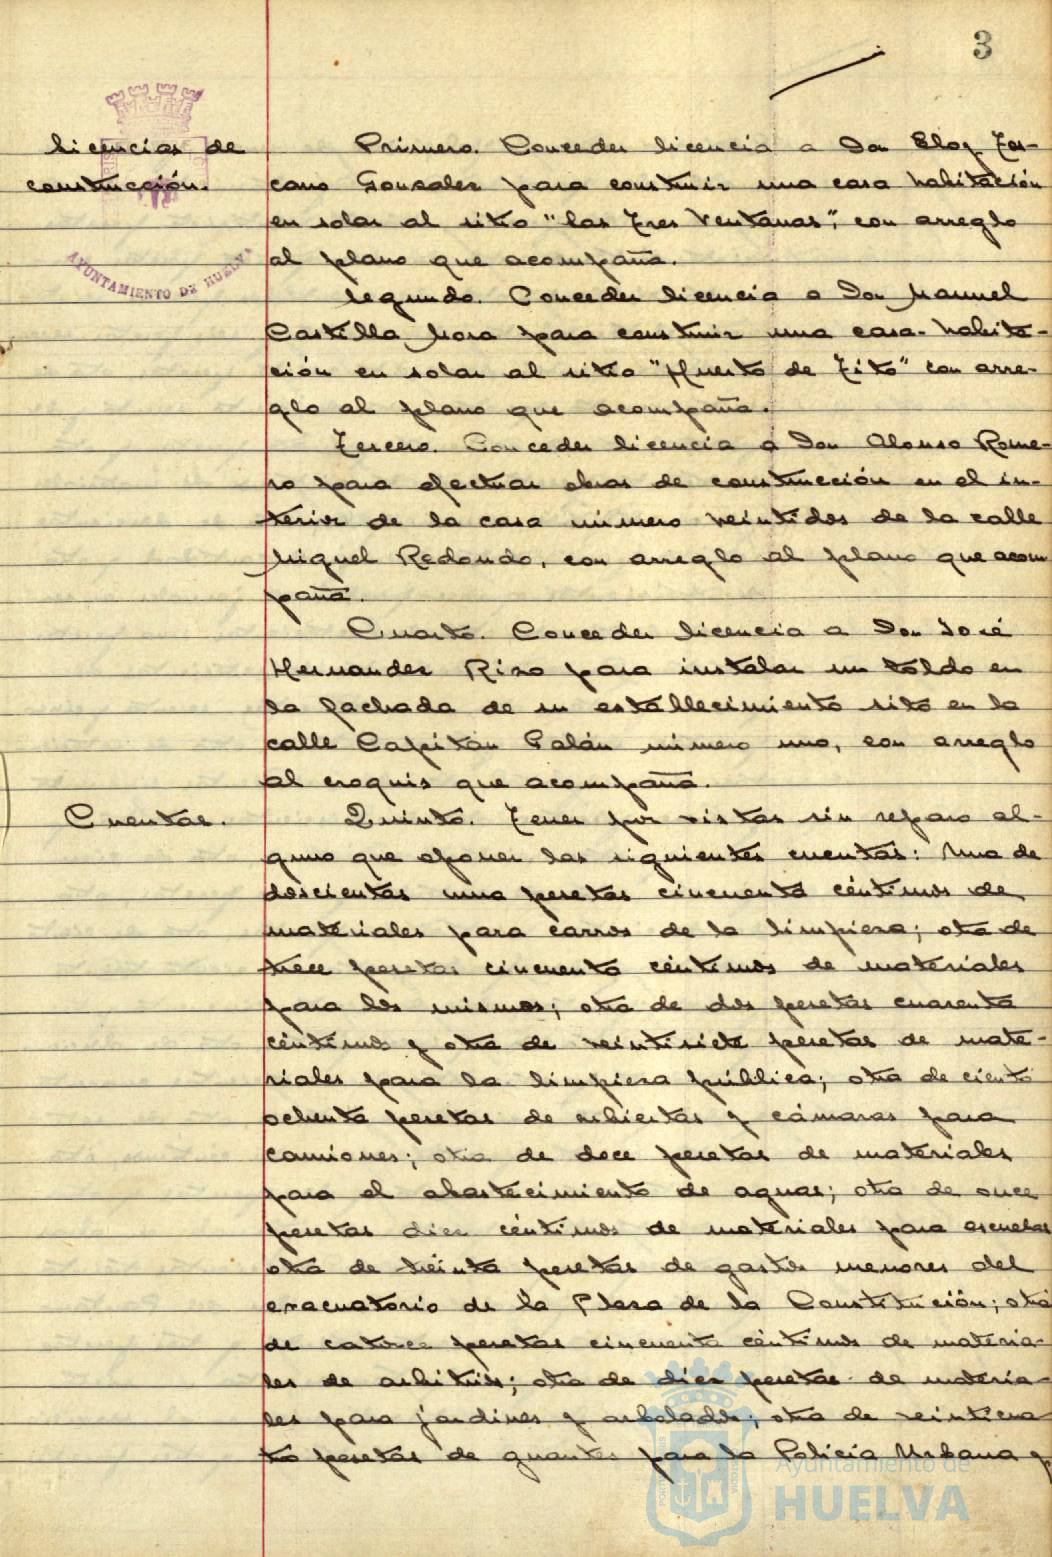 3
licencias de
construcción.
AYUNTAMIENTO DE HUELVA
Primero. Conceder licencia a Don Eloy Tos-
cano Gonzalez para construir una casa habitación
en solar al sitio "las Tres Ventanas", con arreglo
al plano que acompaña.
Segundo. Conceder licencia a Don Manuel
Castilla Mora para construir una casa-habita-
ción en solar al sitio "Huerto de Tito" con arre-
glo al plano que acompaña.
Tercero. Conceder licencia a Don Alonso Rome-
ro para efectuar obras de construcción en el in-
terior de la casa número veintidos de la calle
Miguel Redondo, con arreglo al plano que acom
paña.
Cuarto. Conceder licencia a Don José
Hernandez Rizo para instalar un toldo en
la fachada de su establecimiento sito en la
calle Capitán Galán número uno, con arreglo
al croquis que acompaña.
Cuentas.
Quinto. Tener por vistas sin reparo al-
guno que oponer las siguientes cuentas: Una de
doscientas una pesetas cincuenta céntimos de
materiales para carros de la limpieza; otra de
trece pesetas cincuenta céntimos de materiales
para los mismos; otra de dos pesetas cuarenta
céntimos y otra de veintisiete pesetas de mate-
riales para la limpieza pública; otra de ciento
ochenta pesetas de cubiertas y cámaras para
camiones; otra de doce pesetas de materiales
para el abastecimiento de aguas; otra de once
pesetas diez céntimos de materiales para escuelas
otra de treinta pesetas de gastos menores del
evacuatorio de la Plaza de la Constitución; otra
de catorce pesetas cincuenta céntimos de materia-
les de arbitrios; otra de diez pesetas de materia-
les para jardines y arbolado; otra de veinticua
tro pesetas de guantes para la Policia Urbana y
Ayuntamiento de
HUELVA